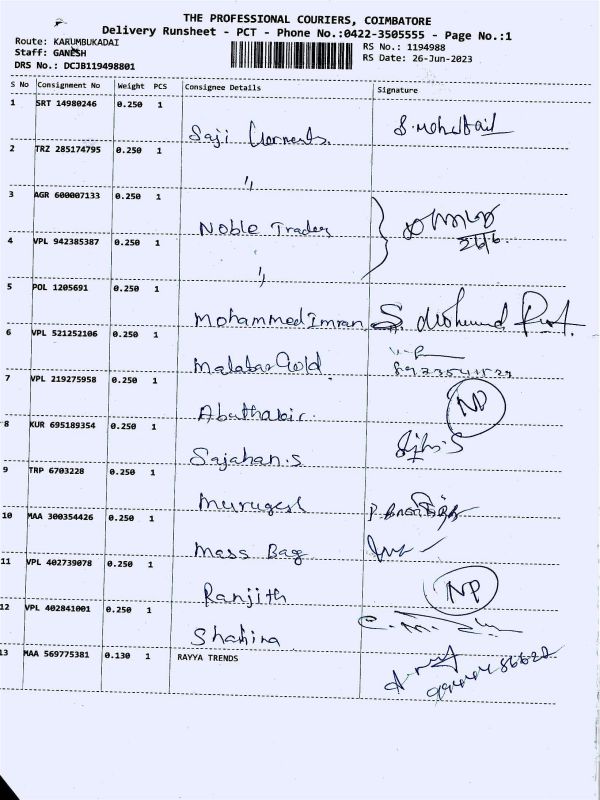 THE PROFESSIONAL COURIERS, COIMBATORE
Delivery Runsheet - PCT - Phone No.:0422-3505555 - Page No.:1
Route: KARUMBUKADAI
RS No.: 1194988
Staff: GANESH
RS Date: 26-Jun-2023
DRS No.: DCJB119498801
S No Consignment No Weight PCS Consignee Details Signature
1 SRT 14980246 0.250 1
Saji Garments.
2 TRZ 285174795 0.250 1
"
3 AGR 600007133 0.250 1
Noble Traders
4 VPL 942385387 0.250 1
"
5 POL 1205691 0.250 1
Mohammed Imran
6 VPL 521252106 0.250 1
Malabar Gold
7 VPL 219275958 0.250 1
NP
Abuthabir.
8 KUR 695189354 0.250 1
Sajahan.S
9 TRP 6703228 0.250 1
Murugesh
10 MAA 300354426 0.250 1
Mass Bag
11 VPL 402739078 0.250 1
NP
Ranjith
12 VPL 402841001 0.250 1
Shahina
13 MAA 569775381 0.130 1 RAYYA TRENDS